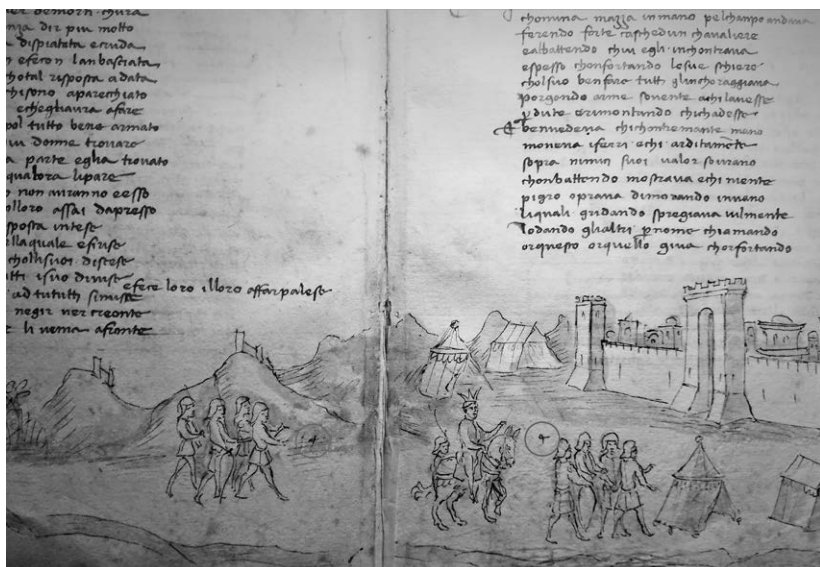 nza dir piu motto
dispiatata ecruda
efecon lanbasciata
chotal risposta adata
chisono aparechiato
echeghaura afare
pol tutto bene armato
donne trovare
a parte eglia trovato
qualora lipare
non avranno eesso
olloro assai dapresso
sposta intese
llaquale efirise
chollisuoi discese
isuo divise
efece loro illoro affar palese
ad tututti simisse
negir ver creonte
e li venia afronte
chonuna mazza in mano pel chanpo andava
ferendo forte caschedun chavaliere
eabattendo chui egli inchontrava
espesso chonfortando lesue schiere
cholsuo benfare tutti glinchoraggiava
porgendo arme sovente achi lavesse
pdute erimontando chichadesse
E benvedeva chichontremante mano
moveva iferri echi arditamēte
sopra nimici suoi valor sovrano
chonbattendo mostrava echi niente
pigro oprava dimorando invano
liquali gridando spregiava vilmente
lodando ghialtri p nome chiamando
orquesto orquello giva chorfortando